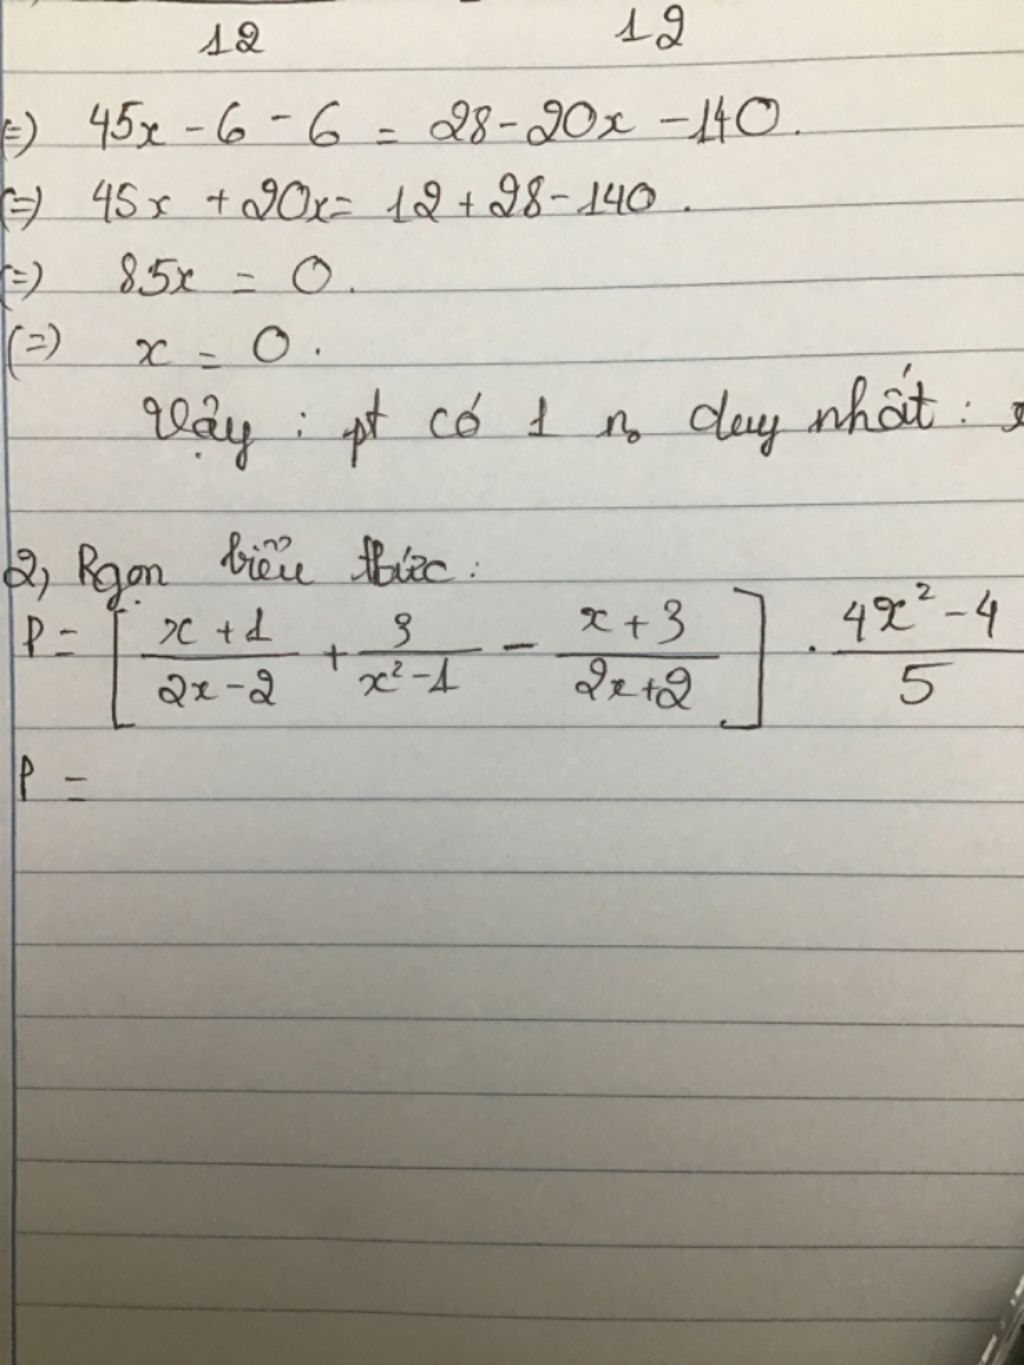 12 12
(=) 45x - 6 - 6 = 28 - 20x - 140.
(=) 45x + 20x = 12 + 28 - 140.
(=) 85x = 0.
(=) x = 0.
Vậy : pt có 1 no duy nhất : x
2, Rgọn biểu thức :
P = [ (x + 1)/(2x - 2) + 3/(x² - 1) - (x + 3)/(2x + 2) ] . (4x² - 4)/5
P =